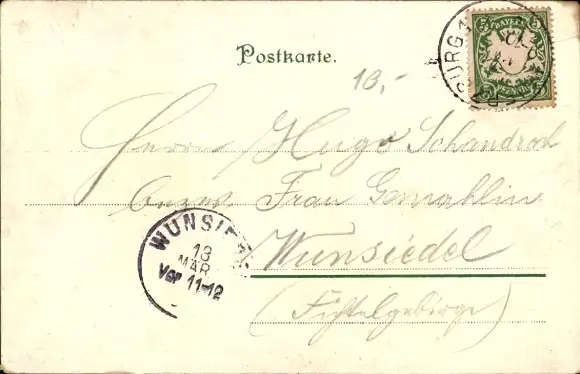 5 BAYERN 5
PFENNIG
BURG
Postkarte.
10,-
Herrn Hugo Schandrod
Frau Gemahlin
Wunsiedel
(Fichtelgebirge)
WUNSIE
13
MÄR
Vor 11-12